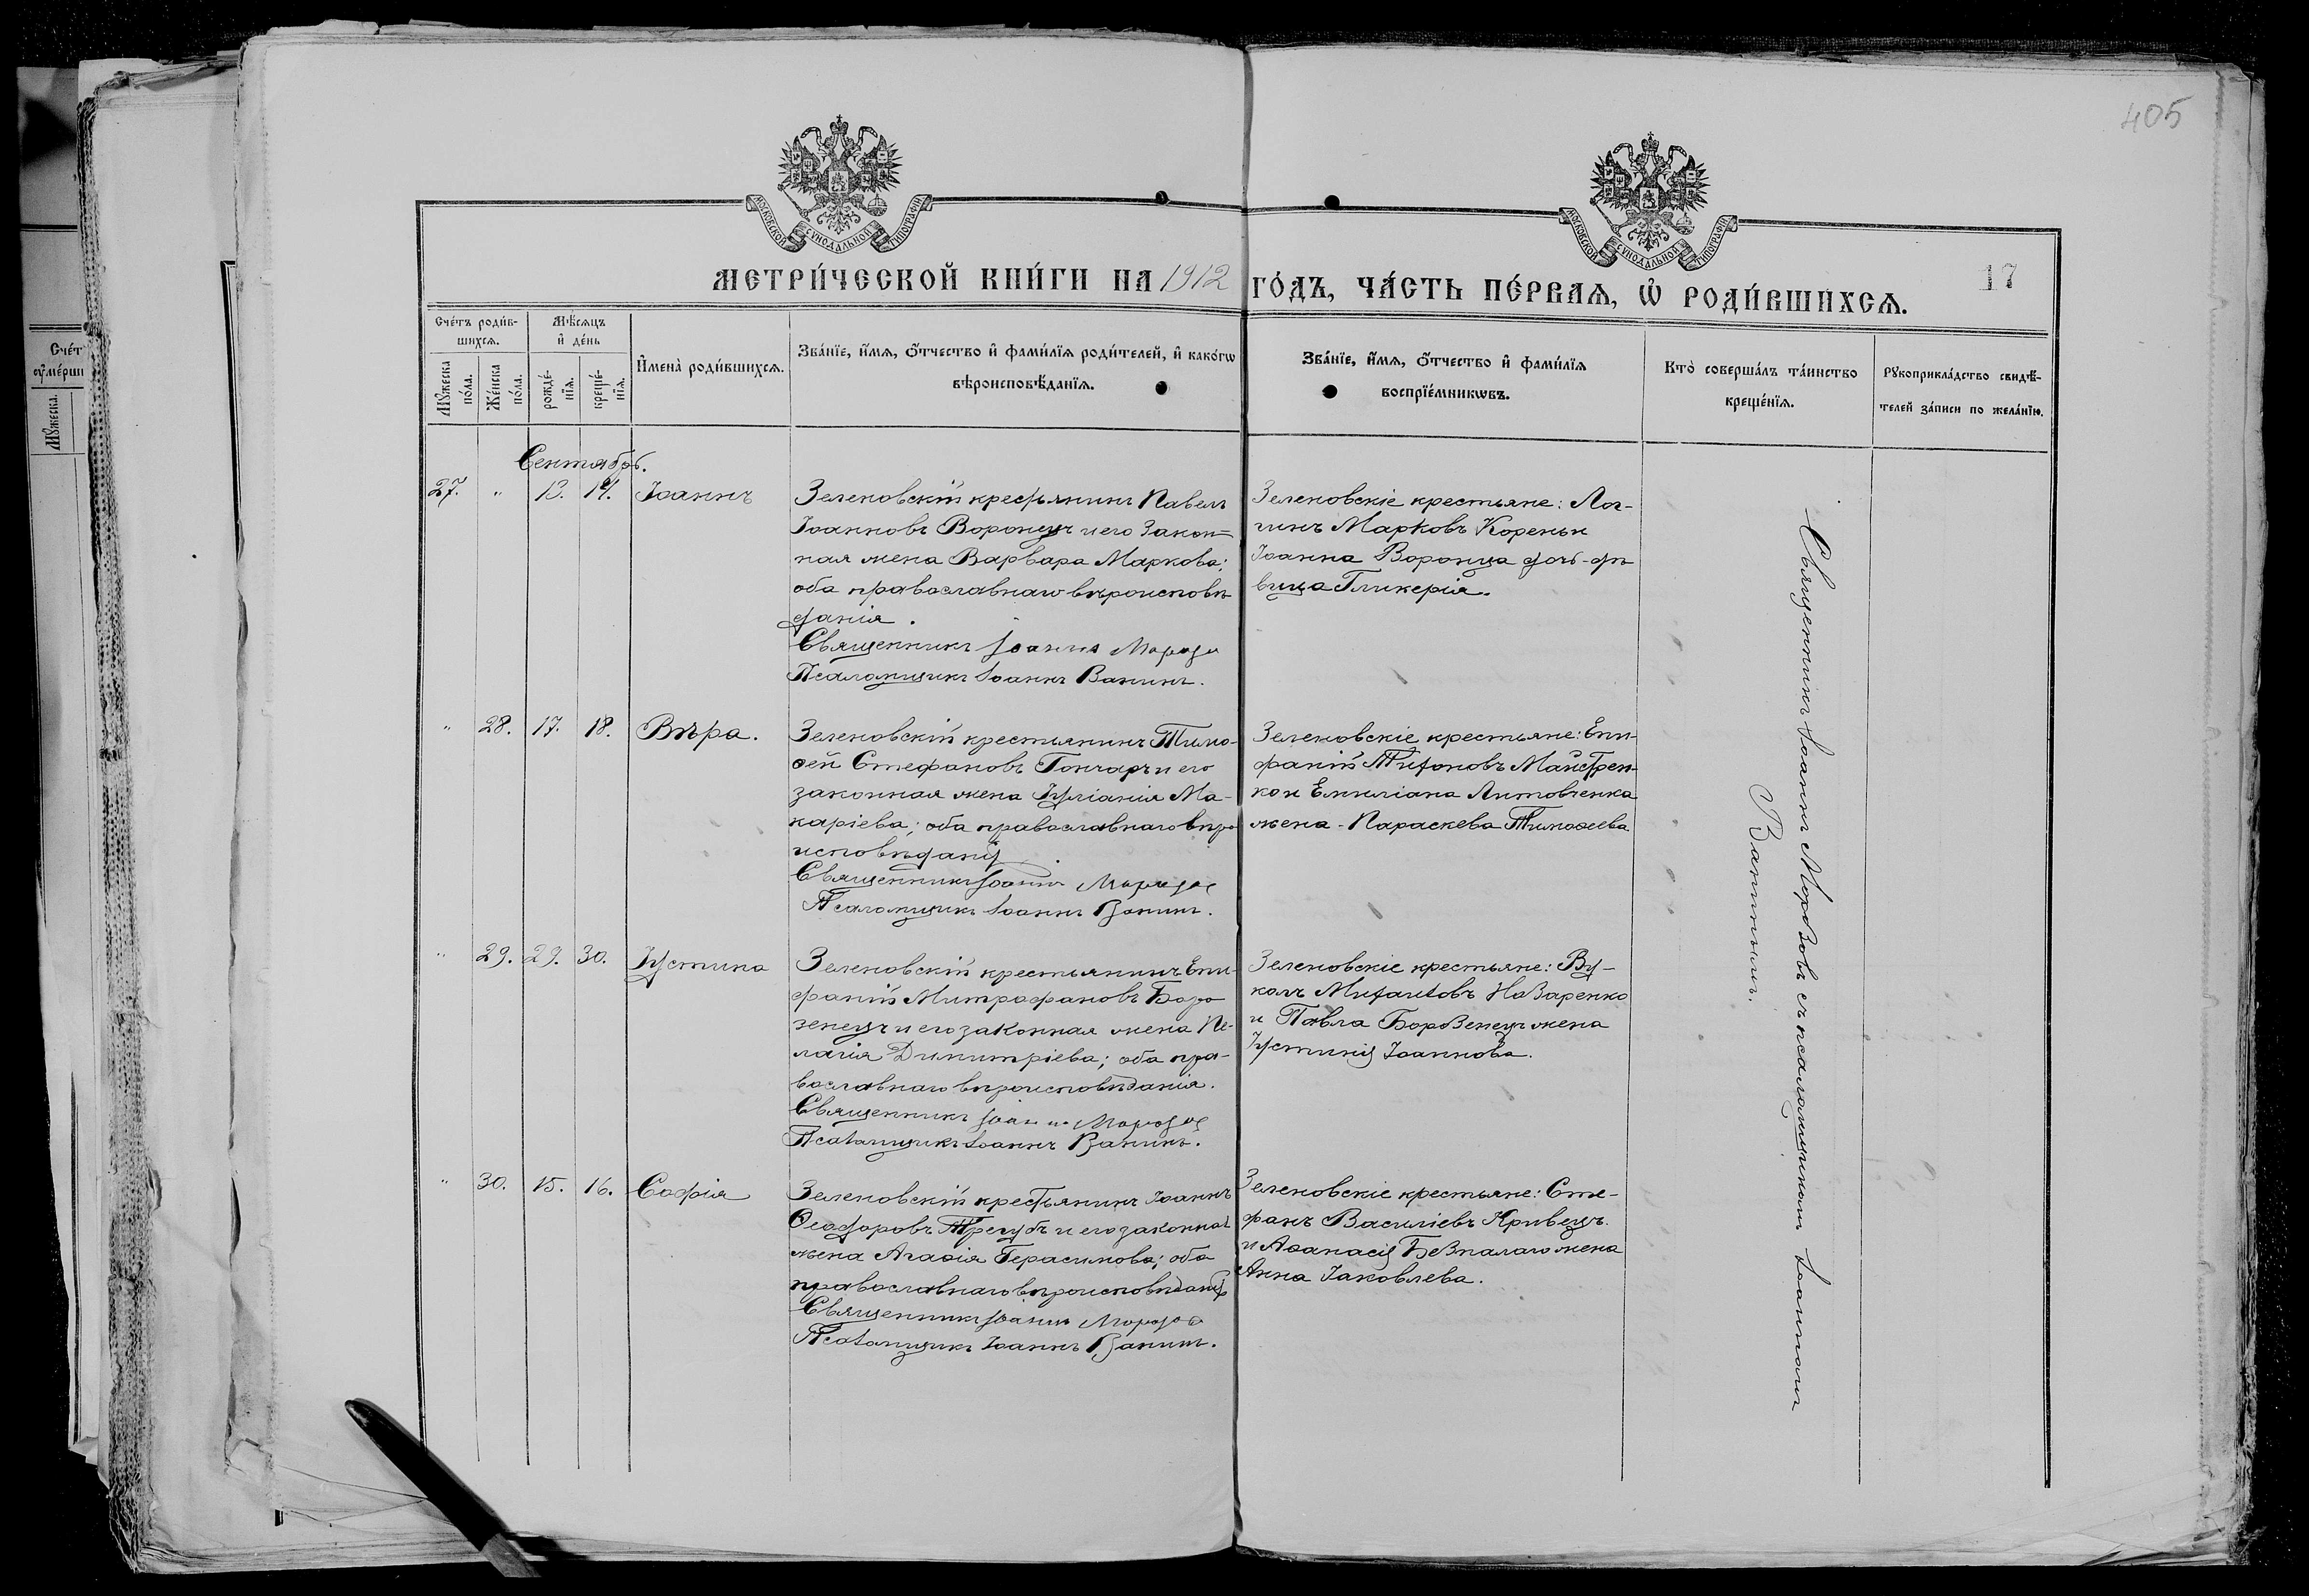 405
МОСКОВСКОЙ СУНОДАЛЬНОЙ ТИПОГРАФІИ
МОСКОВСКОЙ СУНОДАЛЬНОЙ ТИПОГРАФІИ
МЕТРИ́ЧЕСКОЙ КНИ́ГИ НА 1912 ГО́ДЪ, ЧА́СТЬ ПЕ́РВАЯ, Ѡ҆ РОДИ́ВШИХСЯ.
17
Сче́тъ роди́в-
шихся.
Мѣ́сяцъ
и҆ де́нь
Мꙋ́жеска по́ла.
Же́нска по́ла.
рожде́-
нїя.
креще́-
нїя.
И҆мена̀ роди́вшихся.
Зва́нїе, и҆́мя, ѻ҆́тчество и҆ фами́лїя роди́телей, и҆ како́гѡ
вѣроисповѣ́данїя.
Зва́нїе, и҆́мя, ѻ҆́тчество и҆ фами́лїя
воспрїе́мникѡвъ.
Кто̀ соверша́лъ та́инство
креще́нїя.
Рꙋкоприкла́дство свидѣ́-
телей за́писи по жела́нїю.
Сче́т
ꙋме́рши
Мꙋ́жеска.
Сентябрь.
27. " 13. 14. Іоаннъ
Зеленовскій крестьянинъ Павелъ
Іоанновъ Воронецъ и его закон-
ная жена Варвара Маркова;
оба православнаго вѣроисповѣ
данія.
Священникъ Іоаннъ Морозовъ
Псаломщикъ Іоаннъ Ванинъ.
Зеленовскіе крестьяне: Лог-
гинъ Марковъ Корень и
Іоанна Воронца дочь-дѣ
вица Гликерія.
" 28. 17. 18. Вѣра.
Зеленовскій крестьянинъ Тимо-
ѳей Стефановъ Гончаръ и его
законная жена Іуліанія Ма-
каріева; оба православнаго вѣро
исповѣданія.
Священникъ Іоаннъ Морозовъ
Псаломщикъ Іоаннъ Ванинъ.
Зеленовскіе крестьяне: Епи-
фаній Тихоновъ Майстрен-
ко и Емиліана Литовченка
жена - Параскева Тимоѳеева
" 29. 29. 30. Іустина
Зеленовскій крестьянинъ Епи-
фаній Митрофановъ Боро
зенецъ и его законная жена Пе-
лагія Димитріева; оба пра-
вославнаго вѣроисповѣданія.
Священникъ Іоаннъ Морозовъ
Псаломщикъ Іоаннъ Ванинъ.
Зеленовскіе крестьяне: Ву-
колъ Михаиловъ Назаренко
и Павла Борозенец жена
Іустинія Іоаннова.
" 30. 15. 16. Софія
Зеленовскій крестьянинъ Іоаннъ
Ѳеодоровъ Трегубъ и его законная
жена Агаѳія Герасимова; оба
православнаго вѣроисповѣданія
Священникъ Іоаннъ Морозовъ
Псаломщикъ Іоаннъ Ванинъ.
Зеленовскіе крестьяне: Сте-
фанъ Василіевъ Кривецъ
и Аѳанасія Безпалаго жена
Анна Іаковлева.
Священникъ Іоаннъ Морозовъ съ псаломщикомъ Іоанномъ
Ванинымъ.